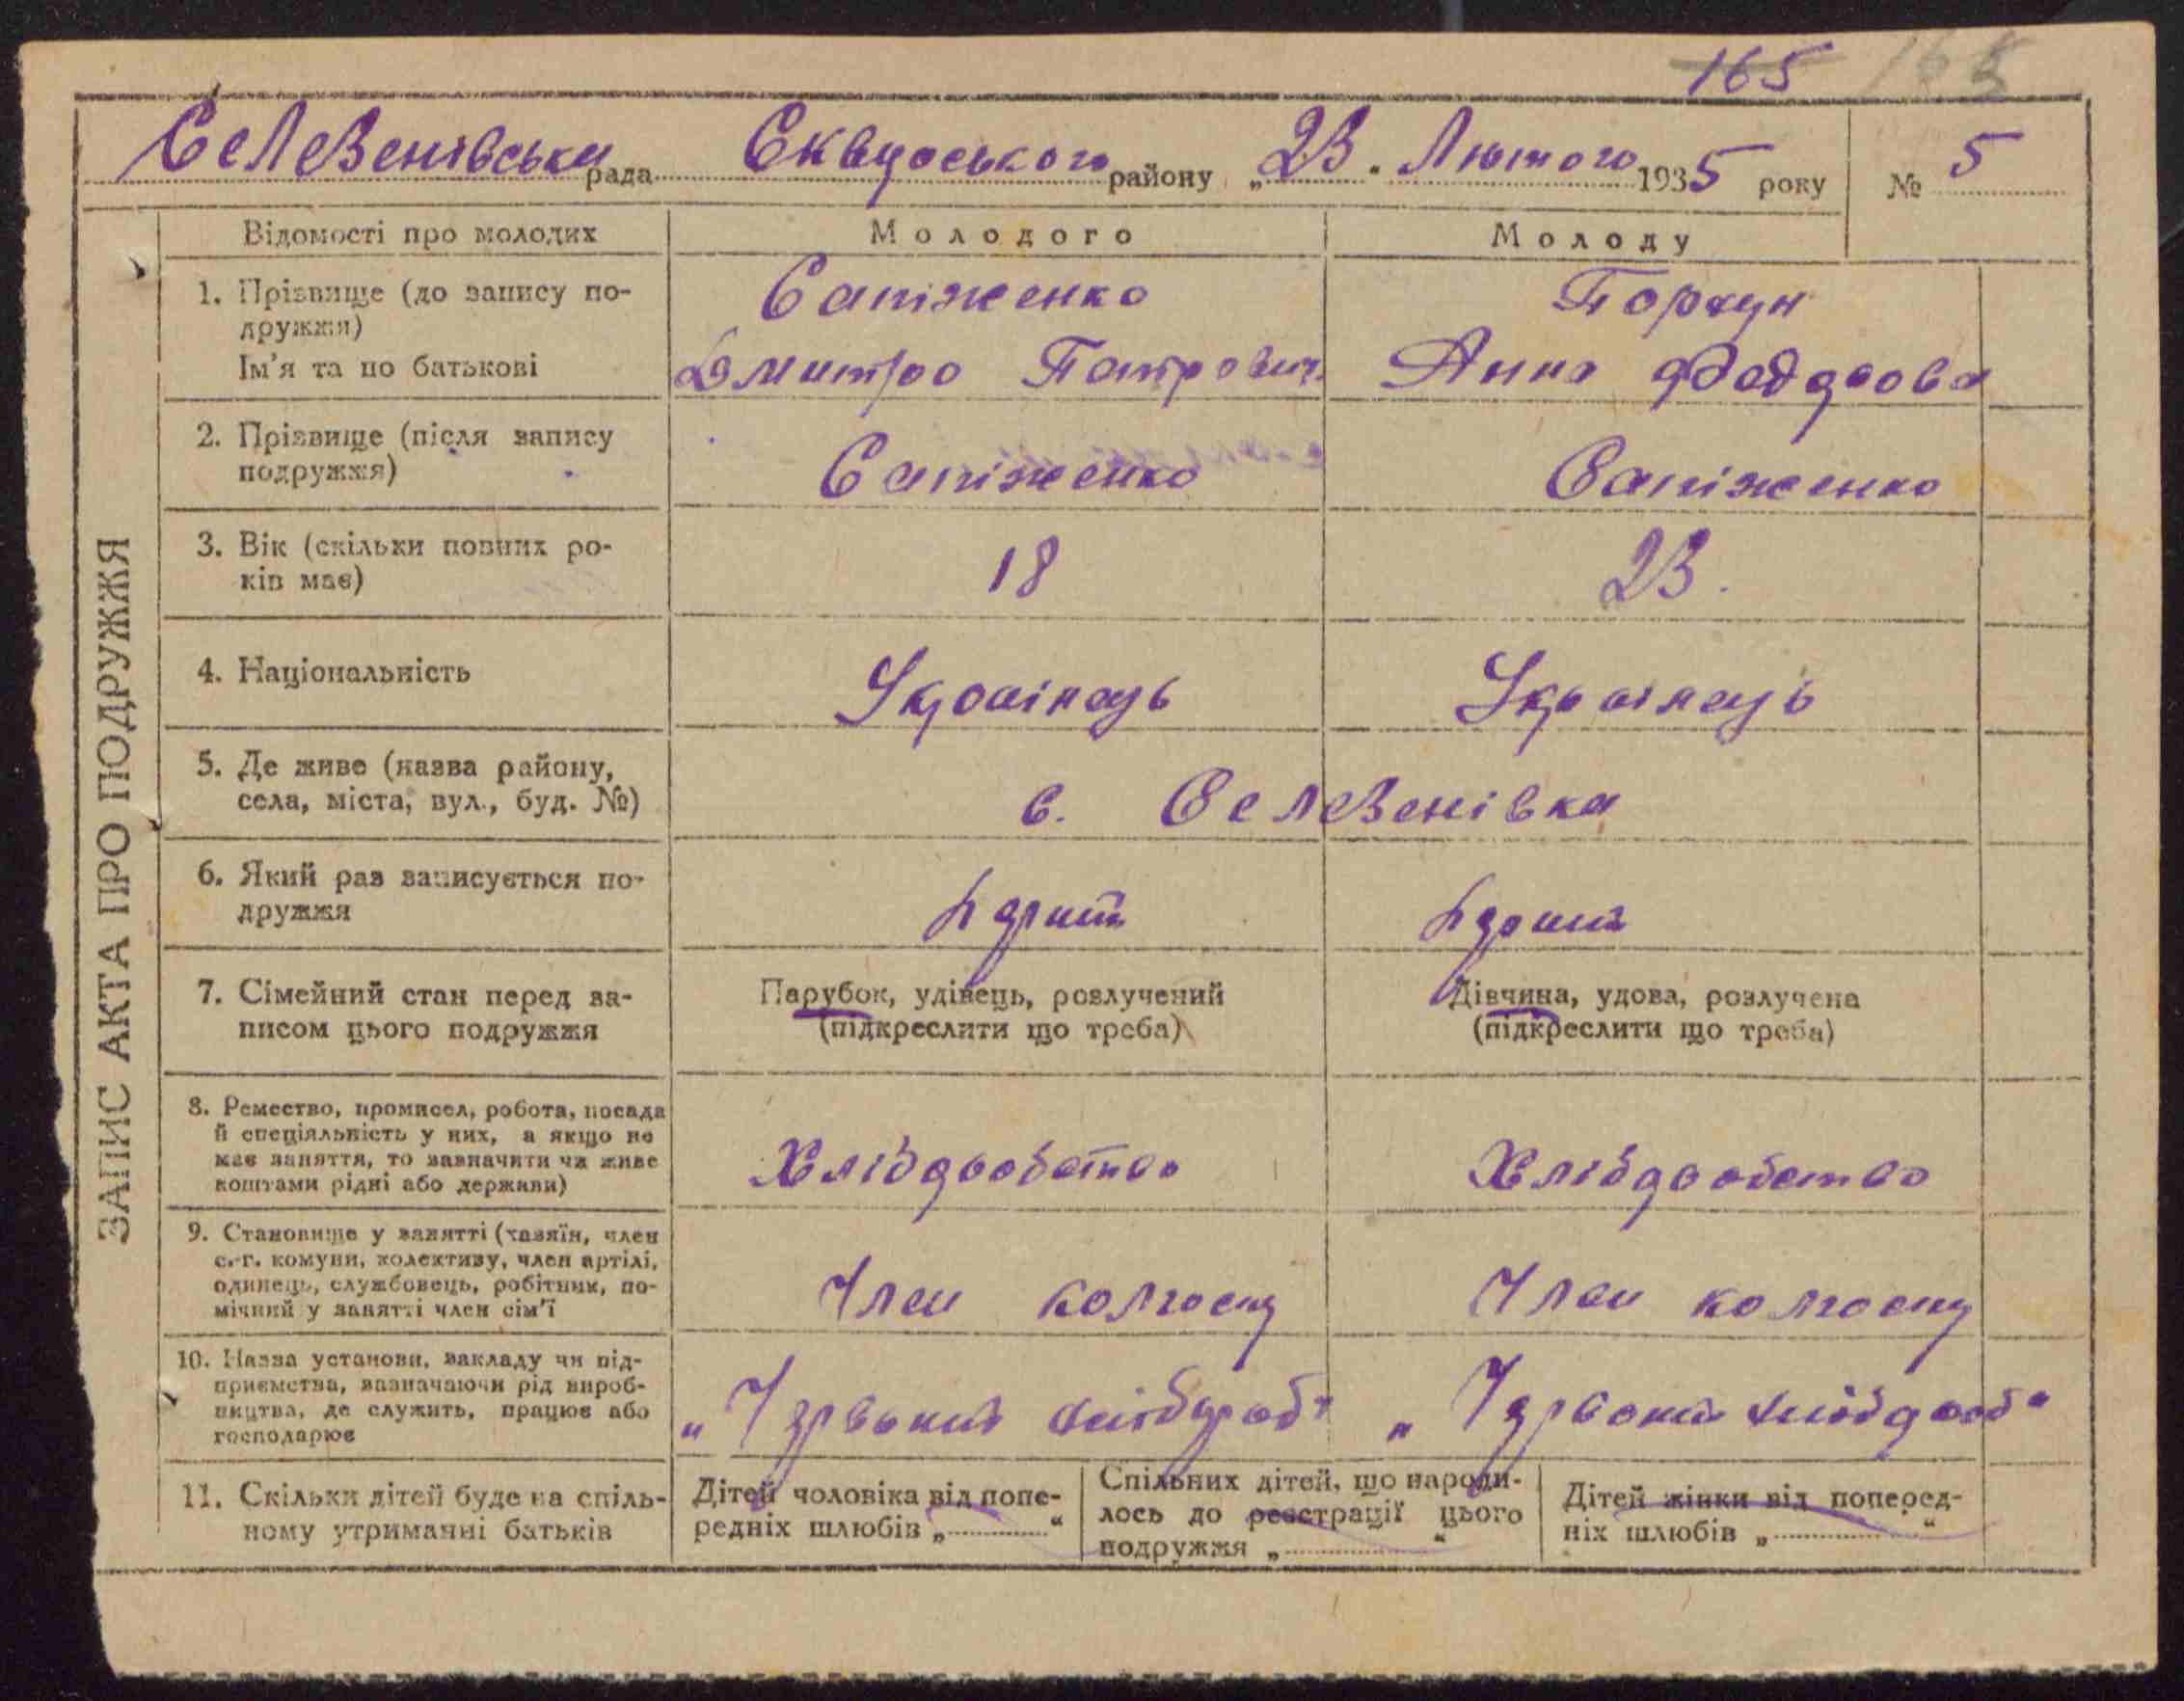 165 165
Селезенівська рада Сквирського району „23" Лютого 1935 року № 5
ЗАПИС АКТА ПРО ПОДРУЖЖЯ
Відомості про молодих Молодого Молоду
1. Прізвище (до запису по- Сапіженко Порхун
дружжя)
Ім'я та по батькові Дмитро Петрович Анна Федорова
2. Прізвище (після запису
подружжя) Сапіженко Сапіженко
3. Вік (скільки повних ро- 18 23.
ків має)
4. Національність Українець Українець
5. Де живе (назва району,
села, міста, вул., буд. №) с. Селезенівка
6. Який раз записується по-
дружжя перший перший
7. Сімейний стан перед за- Парубок, удівець, розлучений Дівчина, удова, розлучена
писом цього подружжя (підкреслити що треба) (підкреслити що треба)
8. Ремество, промисел, робота, посада
й спеціяльність у них, а якщо не
має заняття, то зазначити чи живе Хліборобство Хліборобство
коштами рідні або держави)
9. Становище у занятті (хазяїн, член
с.-г. комуни, колективу, член артілі,
одинець, службовець, робітник, по- Член колгоспу Член колгоспу
мічний у занятті член сім'ї
10. Назва установи, закладу чи під-
приємства, зазначаючи рід вироб-
ництва, де служить, працює або „Червоний хлібороб" „Червоний хлібороб"
господарює
11. Скільки дітей буде на спіль- Дітей чоловіка від попе- Спільних дітей, що народи- Дітей жінки від поперед-
ному утриманні батьків редніх шлюбів „ “ лось до реєстрації цього ніх шлюбів „ “
подружжя „ “